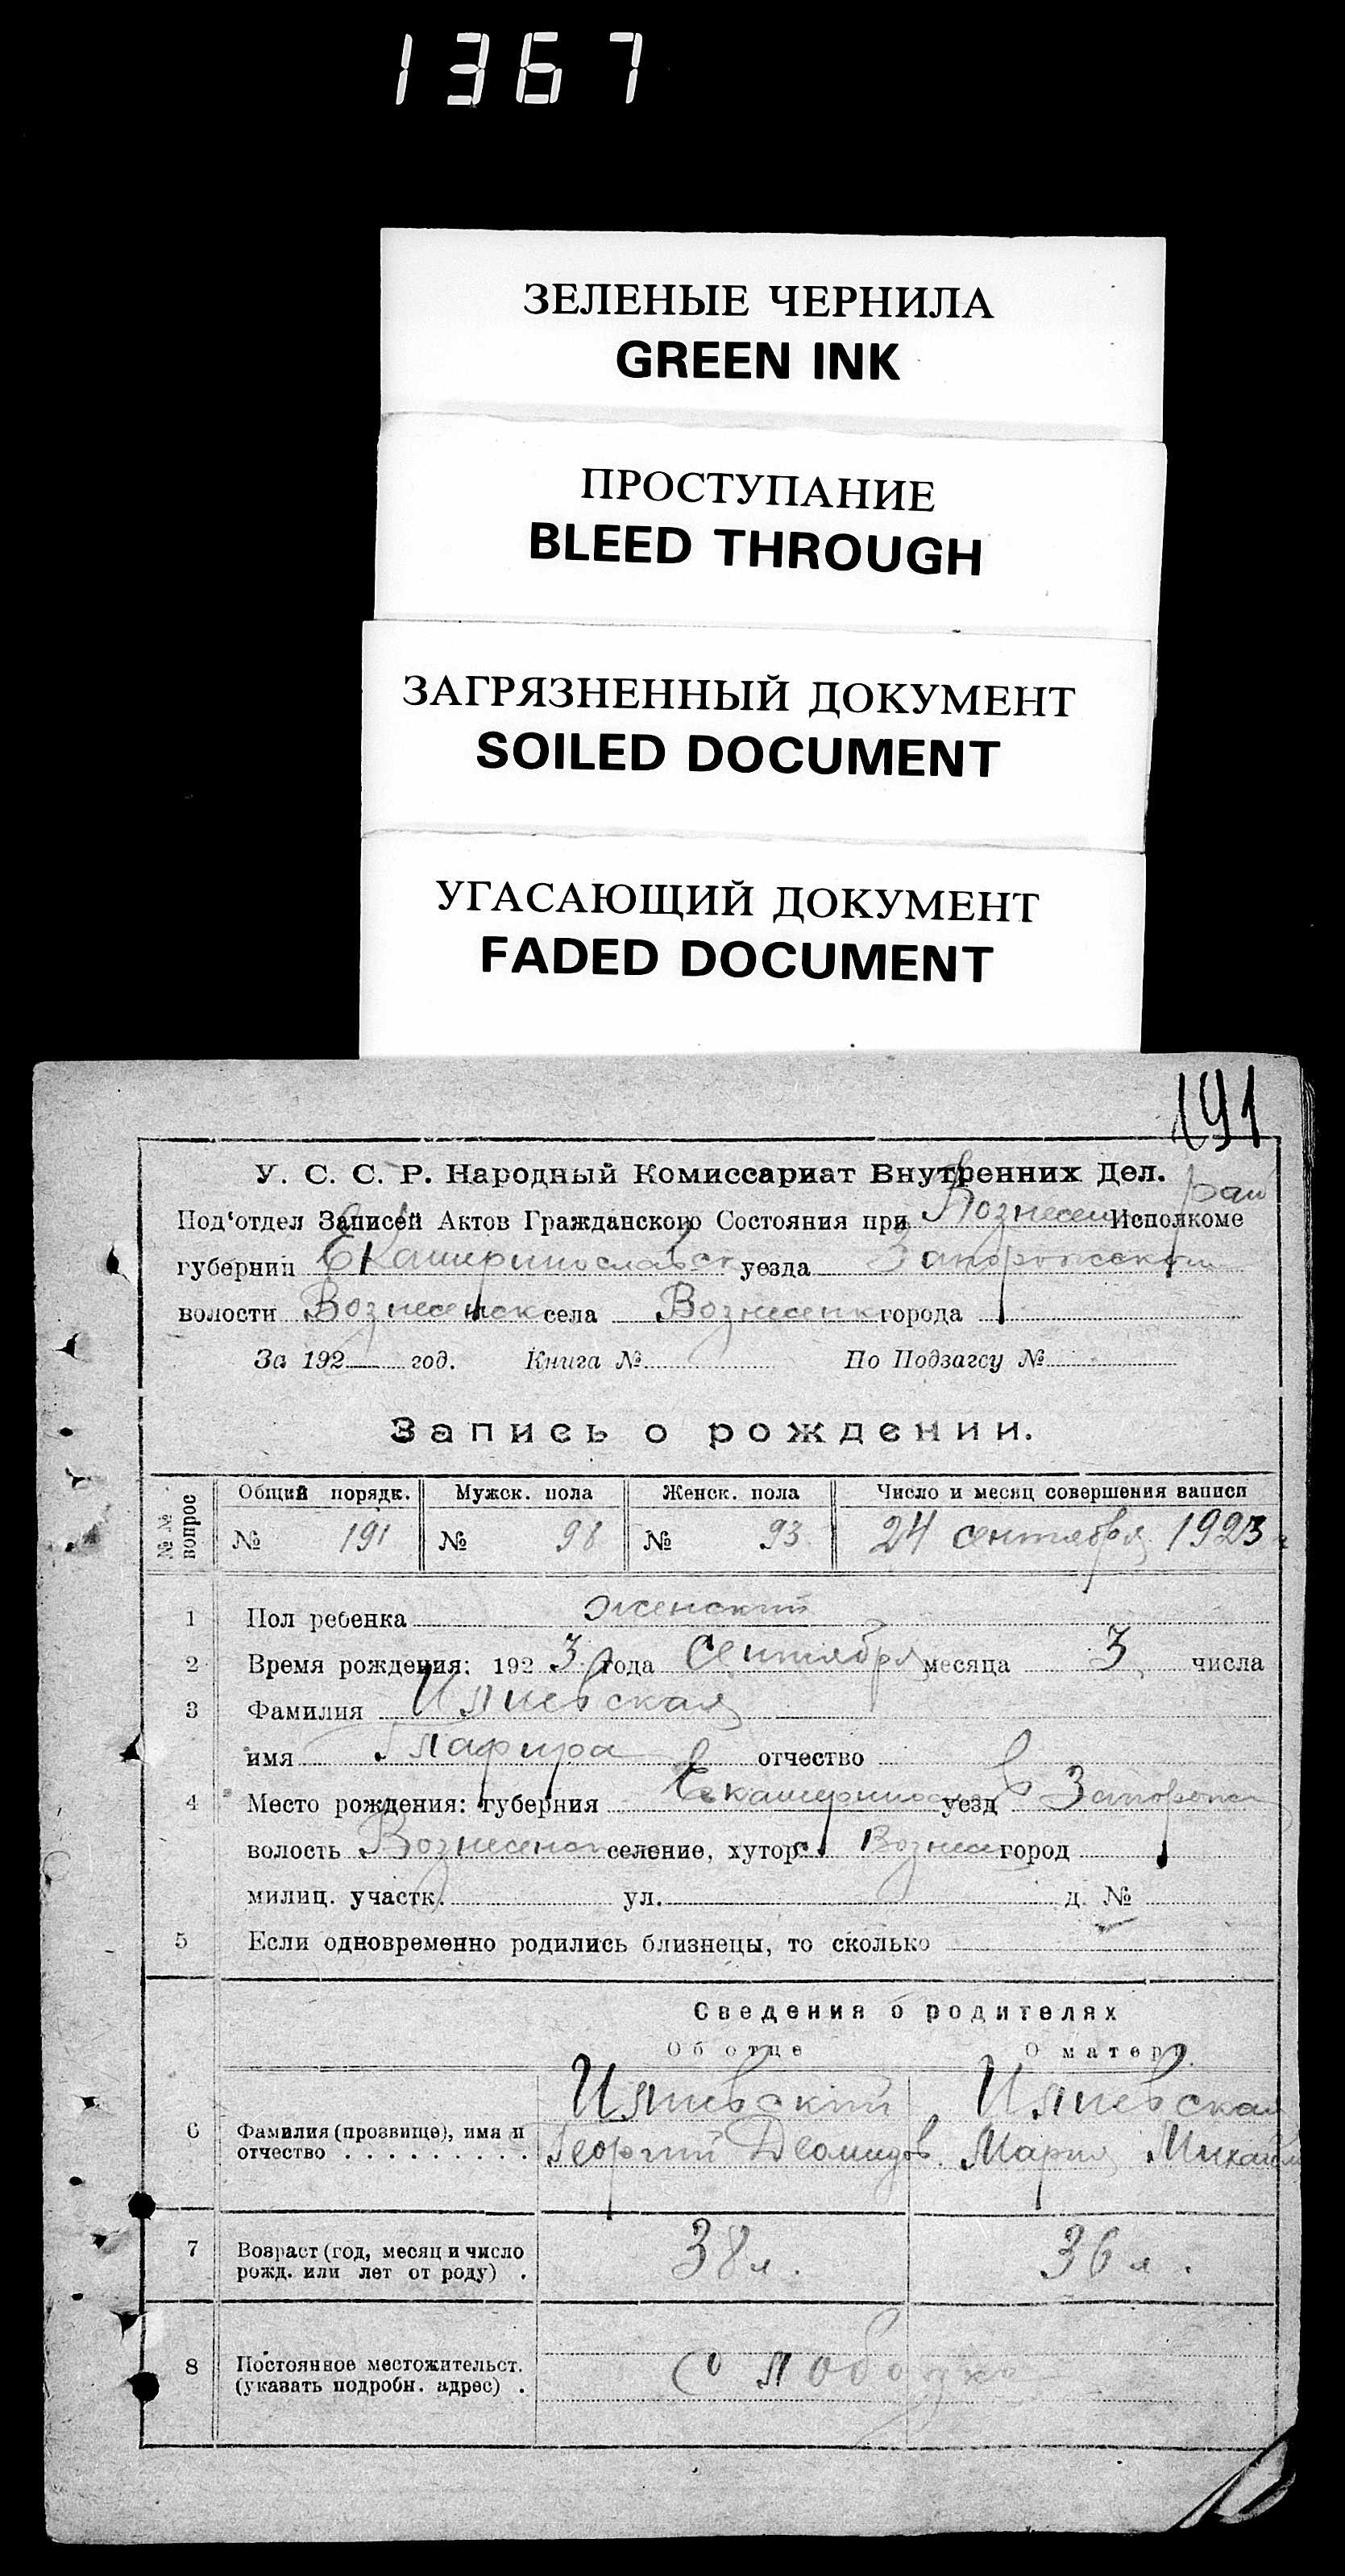 1367
ЗЕЛЕНЫЕ ЧЕРНИЛА
GREEN INK
ПРОСТУПАНИЕ
BLEED THROUGH
ЗАГРЯЗНЕННЫЙ ДОКУМЕНТ
SOILED DOCUMENT
УГАСАЮЩИЙ ДОКУМЕНТ
FADED DOCUMENT
191
У. С. С. Р. Народный Комиссариат Внутренних Дел.
Под'отдел Записей Актов Гражданского Состояния при Вознесен рай Исполкоме
губернии Екатеринославск уезда Запорожский
волости Вознесенск села Вознесенк города
За 192 год. Книга № По Подзагсу №
Запись о рождении.
№№ вопрос Общий порядк. Мужск. пола Женск. пола Число и месяц совершения записи
№ 191 № 98 № 93 24 сентября 1923
1 Пол ребенка женский
2 Время рождения: 192 3 года Сентября месяца 3 числа
3 Фамилия Иллевская
имя Глафира отчество
4 Место рождения: губерния Екатеринос уезд Запорожск
волость Вознесенск селение, хутор с. Вознес город
милиц. участк. ул. д. №
5 Если одновременно родились близнецы, то сколько
Сведения о родителях
Об отце О матери
6 Фамилия (прозвище), имя и
отчество
Георгий Деомидов. Мария Михайл
7 Возраст (год, месяц и число
рожд. или лет от роду) . 38 л. 36 л.
8 Постоянное местожительст.
(указать подробн. адрес) . Слободка